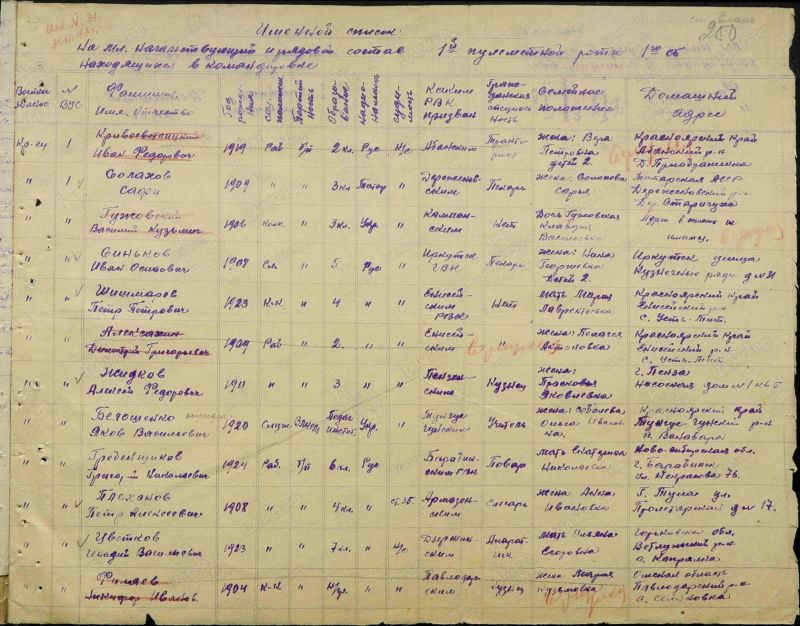 Именной список
На мл. начальствующий и рядовой состав 1ой пулеметной роты 1го сб
находящихся в командировке
Воинск. звание № ВУС Фамилия Имя, Отчество Год рожден. Партий- ность Образо- вание Нацио- нальность Каким РВК призван Граж- данская специаль- ность Семейное положение Домашний адрес
Кр-ец 1 Кривосветлицкий Иван Федорович 1919 Раб б/п 2 кл. Рус н/с Абанским Тракто- рист жена: Вера Петровна детей 2. Красноярский край Абанский р-н Д. Преображенка
" 1 Солахов Сафи 1909 " " 3 кл Татар " Дрожжанов- ским Пекарь жена: Солахова Татарская АССР Дрожжановский р-н
" " Гужовский Василий Кузьмич 1906 Колх. " 3 кл. Укр. " Камен- ским Нет Дочь Гужовская Клавдия Васильевна
" " Синьков Иван Осипович 1907 Сл. " 5 Рус " Иркутск ГВК Пекарь жена: Нина Георгиевна детей 2. Иркутск улица Кузнечные ряды
" " Шишмарев Петр Петрович 1923 К-к " 4 " " Енисей- ским РВК Нет мать Мария Лаврентьевна Красноярский край Енисейский р-н с. Усть-Пит.
" " Алексахин Дмитрий Григорьевич 1909 Раб " 2. " " Енисей- ским " жена: Пелагея Красноярский край Енисейский р-н с. Усть-Пит
" " Жидков Алексей Федорович 1911 " " 3 " " Пензен- ским Кузнец жена: Прасковья Яковлевна г. Пенза
" " Белошенко Яков Васильевич 1920 Служ ВЛКСМ Педаг инстит. Укр. " Тунгус- Чунским Учитель жена: Соболева Ольга Иванов- на. Красноярский край Тунгус-Чунский р-н п. Ванавара
" " Гребенщиков Григорий Николаевич 1924 Раб. б/п 6 кл. Рус " Барабин- ским РВК Повар мать Екатерина Николаевна Ново-сибирская обл. г. Барабинск ул. Некрасова 76.
" " Плеханов Петр Алексеевич 1908 " " 4 кл. " Слесарь жена Анна Ивановна Г. Тула ул. Пролетарская д № 17.
" " Цветков Генадий Васильевич 1923 " " 7 кл. " н/с Дзержин- ским Аппарат- чик мать Ульяна Егоровна Горьковская обл. Ветлужский р-н
" " Филяев Никифор Иванов. 1904 К-к " " " Павлодар- ским Кузнец жена Мария Кузьмовна Омская область Павлодарский р-н с. Семеновка